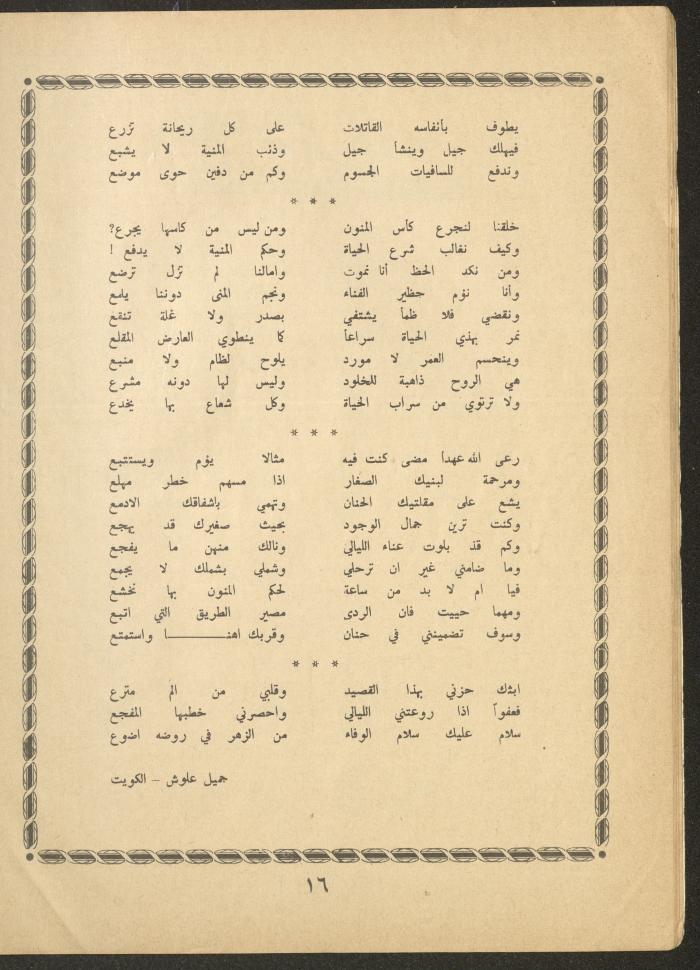 يطوف بأنفاسه القاتلات على كل ريحانة تزرع
فيهلك جيل وينشأ جيل وذئب المنية لا يشبع
وندفع للسافيات الجسوم وكم من دفين حوى موضع
* * *
خلقنا لنجرع كأس المنون ومن ليس من كاسها يجرع؟
وكيف نغالب شرع الحياة وحكم المنية لا يدفع !
ومن نكد الحظ أنا نموت وامالنا لم تزل ترضع
وأنا نؤم حظير الفناء ونجم المنى دوننا يلمع
ونقضي فلا ظمأ يشتفي بصدر ولا غلة تنقع
نمر بهذي الحياة سراعاً كما ينطوي العارض المقلع
وينحسم العمر لا مورد يلوح لظام ولا منبع
هي الروح ذاهبة للخلود وليس لها دونه مشرع
ولا ترتوي من سراب الحياة وكل شعاع بها يخدع
* * *
رعى الله عهداً مضى كنت فيه مثالا يؤم ويستتبع
ومرحمة لبنيك الصغار اذا مسهم خطر مهلع
يشع على مقلتيك الحنان وتهمي باشفاقك الادمع
وكنت ترين جمال الوجود بحيث صغيرك قد يهجع
وكم قد بلوت عناء الليالي ونالك منهن ما يفجع
وما ضامني غير ان ترحلي وشملي بشملك لا يجمع
فيا ام لا بد من ساعة لحكم المنون بها نخشع
ومهما حييت فان الردى مصير الطريق التي اتبع
وسوف تضمينني في حنان وقربك اهنـــا واستمتع
* * *
ابثك حزني بهذا القصيد وقلبي من الم مترع
فعفواً اذا روعتني الليالي واحصرني خطبها المفجع
سلام عليك سلام الوفاء من الزهر في روضه اضوع
جميل علوش – الكويت
١٦